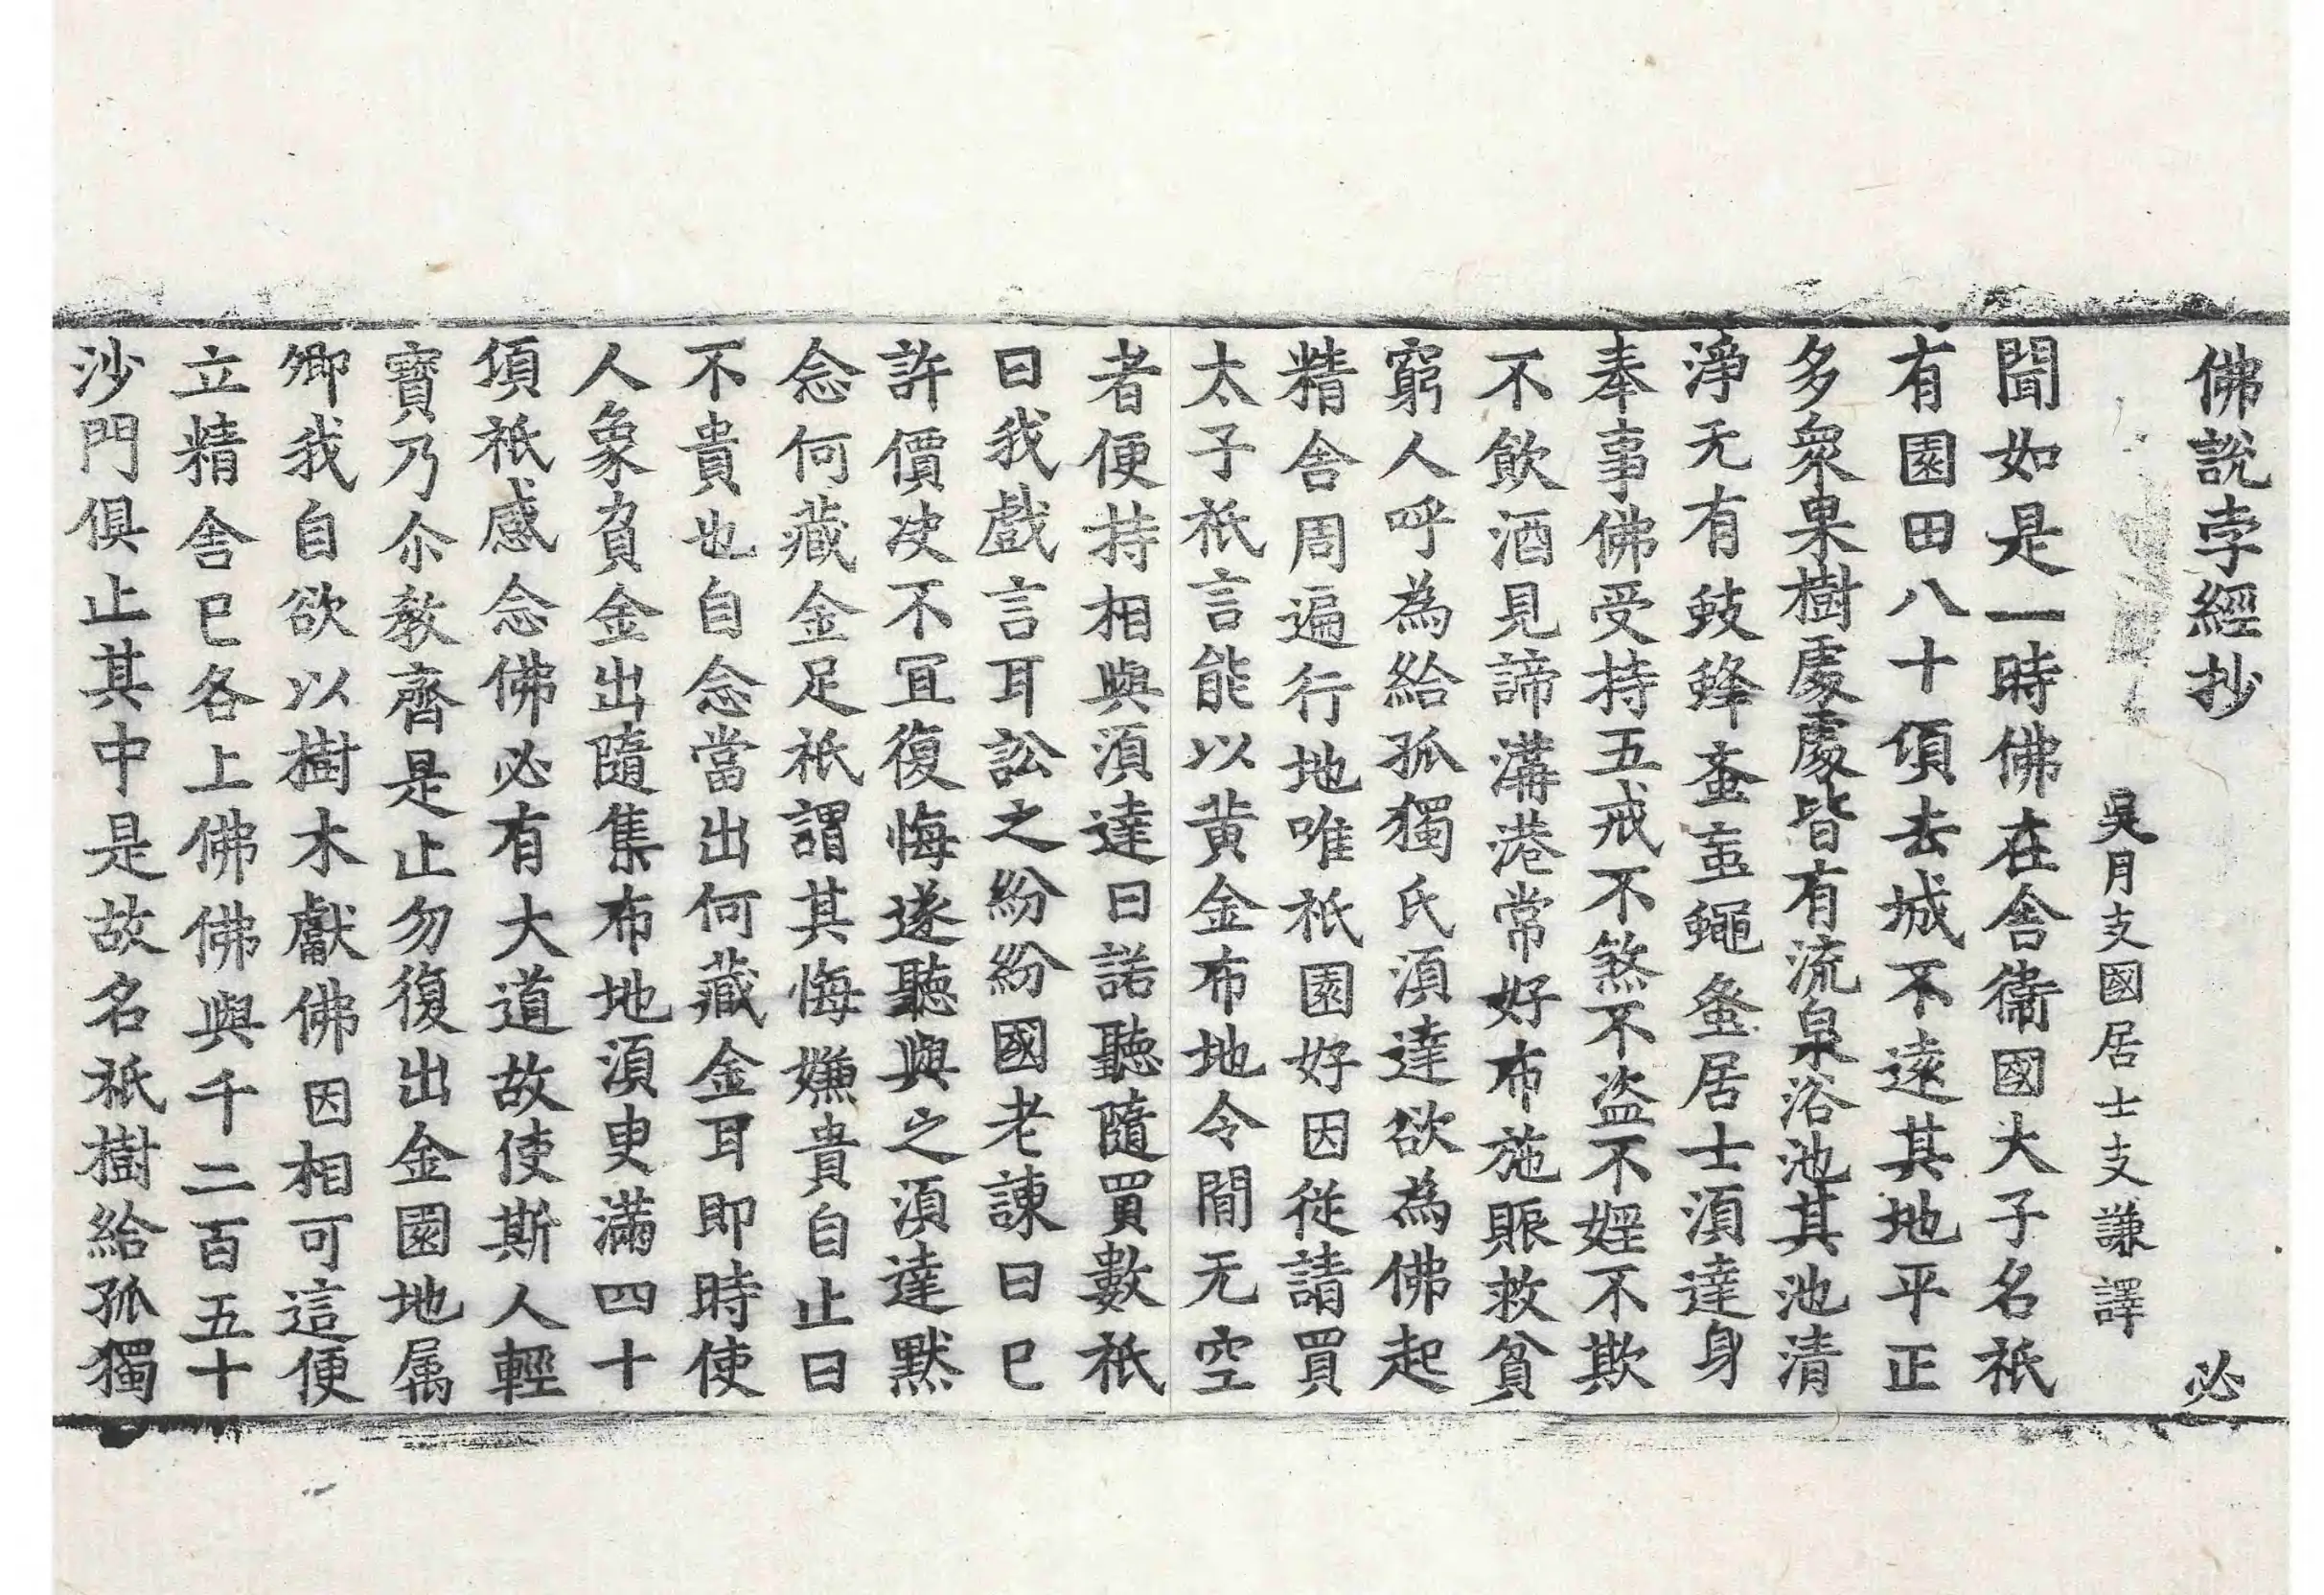 佛說孛經抄 必
吳月支國居士支謙譯
聞如是一時佛在舍衞國大子名祇
有園田八十頃去城不遠其地平正
多衆果樹處處皆有流泉浴池其池清
淨无有蚑蜂蚉䖟蠅蚤居士湏達身
奉事佛受持五戒不煞不盜不婬不欺
不飲酒見諦溝港常好布施賑救貧
窮人呼為給孤獨氏湏達欲為佛起
精舍周遍行地唯祇園好因從請買
太子祇言能以黃金布地令閒无空
者便持相與湏達曰諾聽隨買數祇
曰我戲言耳訟之紛紛國老諫曰已
許價决不冝復悔遂聽與之湏達默
念何藏金足祇謂其悔嫌貴自止曰
不貴也自念當出何藏金耳即時使
人象負金出隨集布地湏臾滿四十
頃祇感念佛必有大道故使斯人輕
寶乃尒教齊是止勿復出金園地属
卿我自欲以樹木獻佛因相可這便
立精舍已各上佛佛與千二百五十
沙門俱止其中是故名祇樹給孤獨